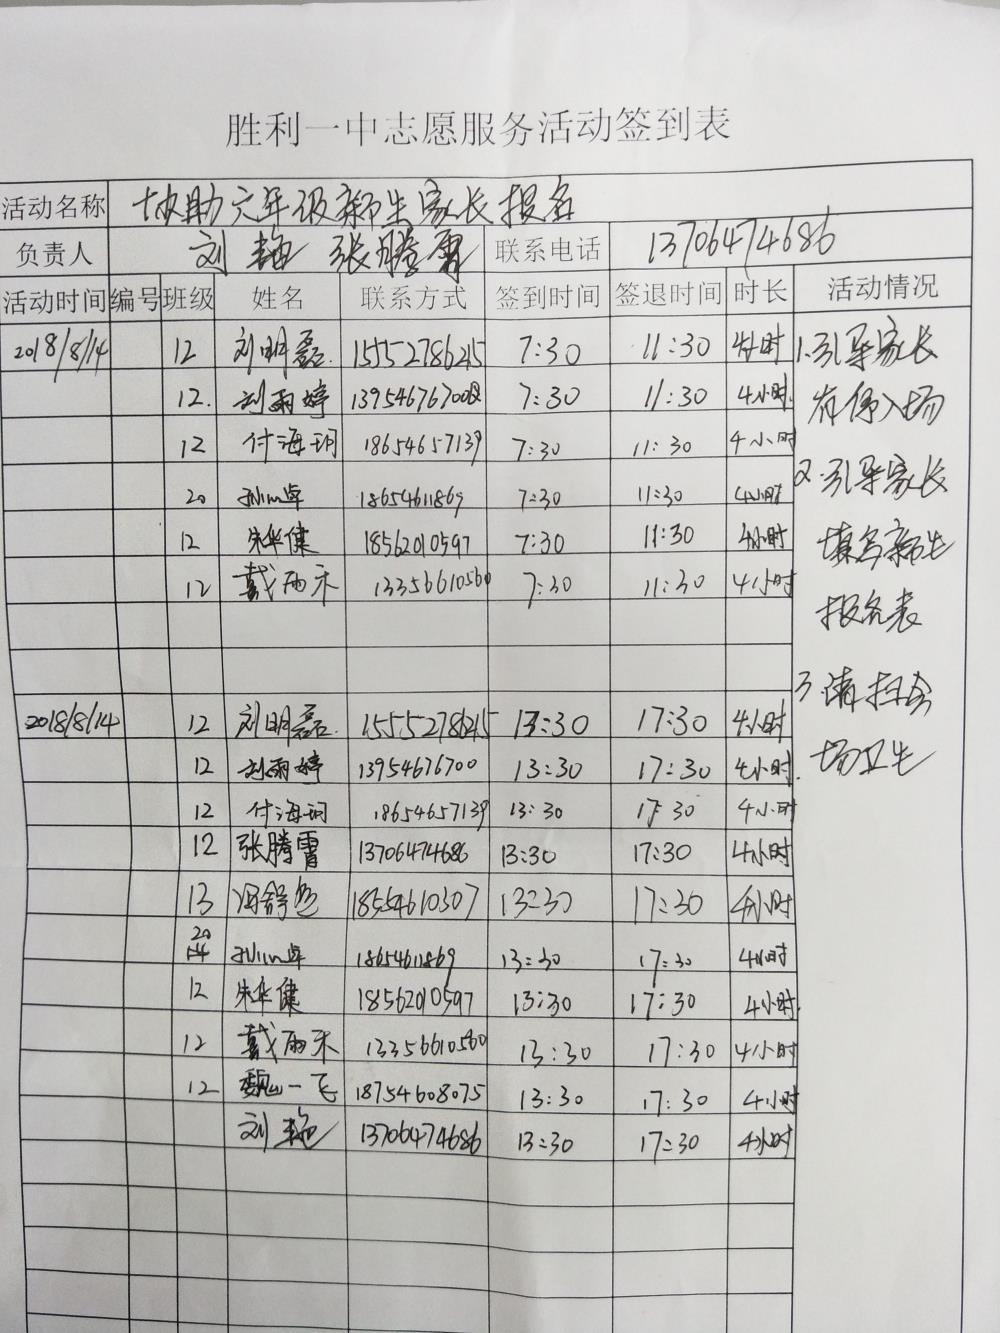 胜利一中志愿服务活动签到表
活动名称 协助六年级新生家长报名
负责人 刘艳 张腾霄 联系电话 13706474686
活动时间 编号 班级 姓名 联系方式 签到时间 签退时间 时长 活动情况
2018/8/14 12 刘明磊 15552786245 7:30 11:30 4小时 1.引导家长
12. 刘雨婷 1395467670 7:30 11:30 4小时. 有序入场
12 付海玥 18654657139 7:30 11:30 4小时
20 卓 18654611869 7:30 11:30 4小时 2.引导家长
12 朱华健 18562010597 7:30 11:30 4小时 填写新生
12 戴雨禾 13356610560 7:30 11:30 4小时 报名表
2018/8/14 12 刘明磊. 15552786245 13:30 17:30 4小时 3.清扫会
12 刘雨婷 13954676700 13:30 17:30 4小时. 场卫生
12 付海玥 18654657139 13:30 17:30 4小时
12 张腾霄 13706474686 13:30 17:30 4小时
13 冯舒 18554610307 13:30 17:30 4小时
20 卓 18654611869 13:30 17:30 4小时
12 朱华健 18562010597 13:30 17:30 4小时.
12 戴雨禾 13356610560 13:30 17:30 4小时
12 魏一飞 18754608075 13:30 17:30 4小时
刘艳 13706474686 13:30 17:30 4小时